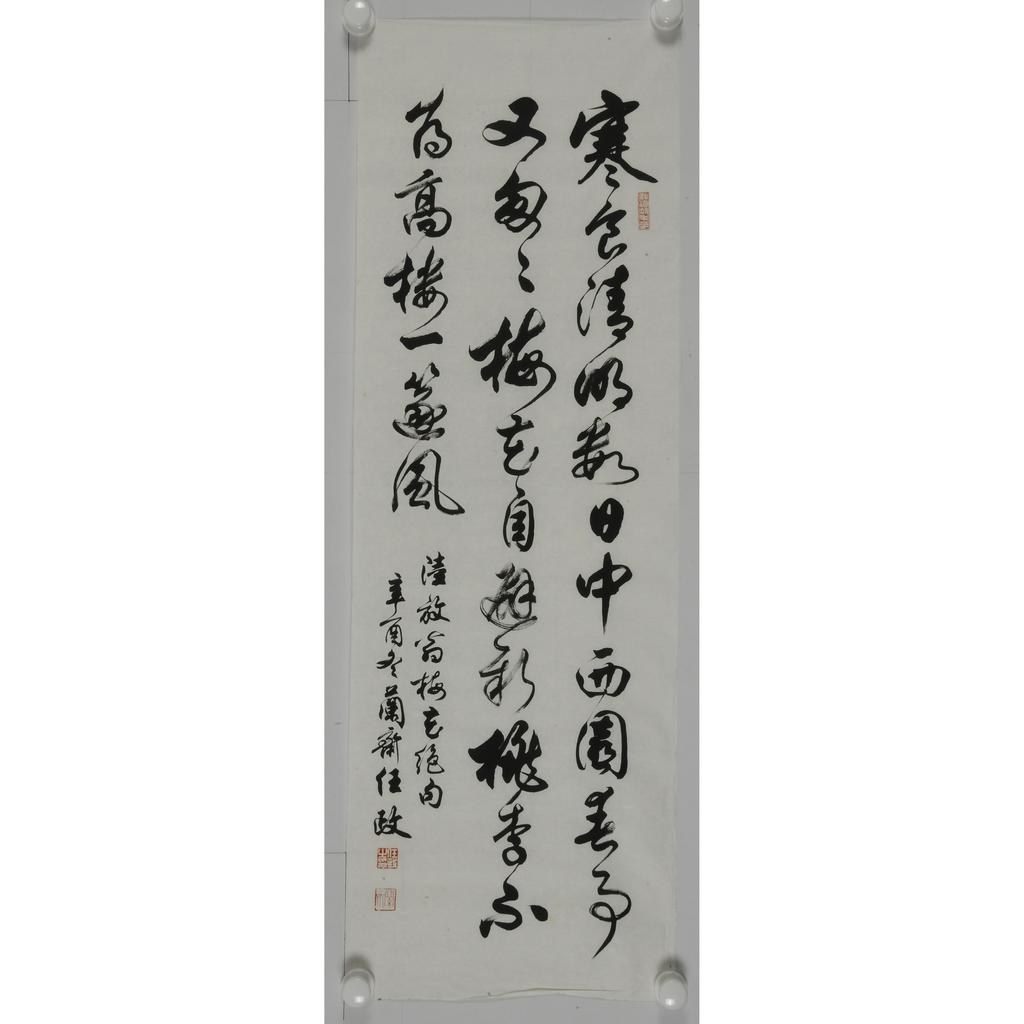 寒食清明數日中西園春事
又匆々梅花自避新桃李不
為高樓一篴風
陸放翁梅花絕句
辛酉冬蘭齋任政